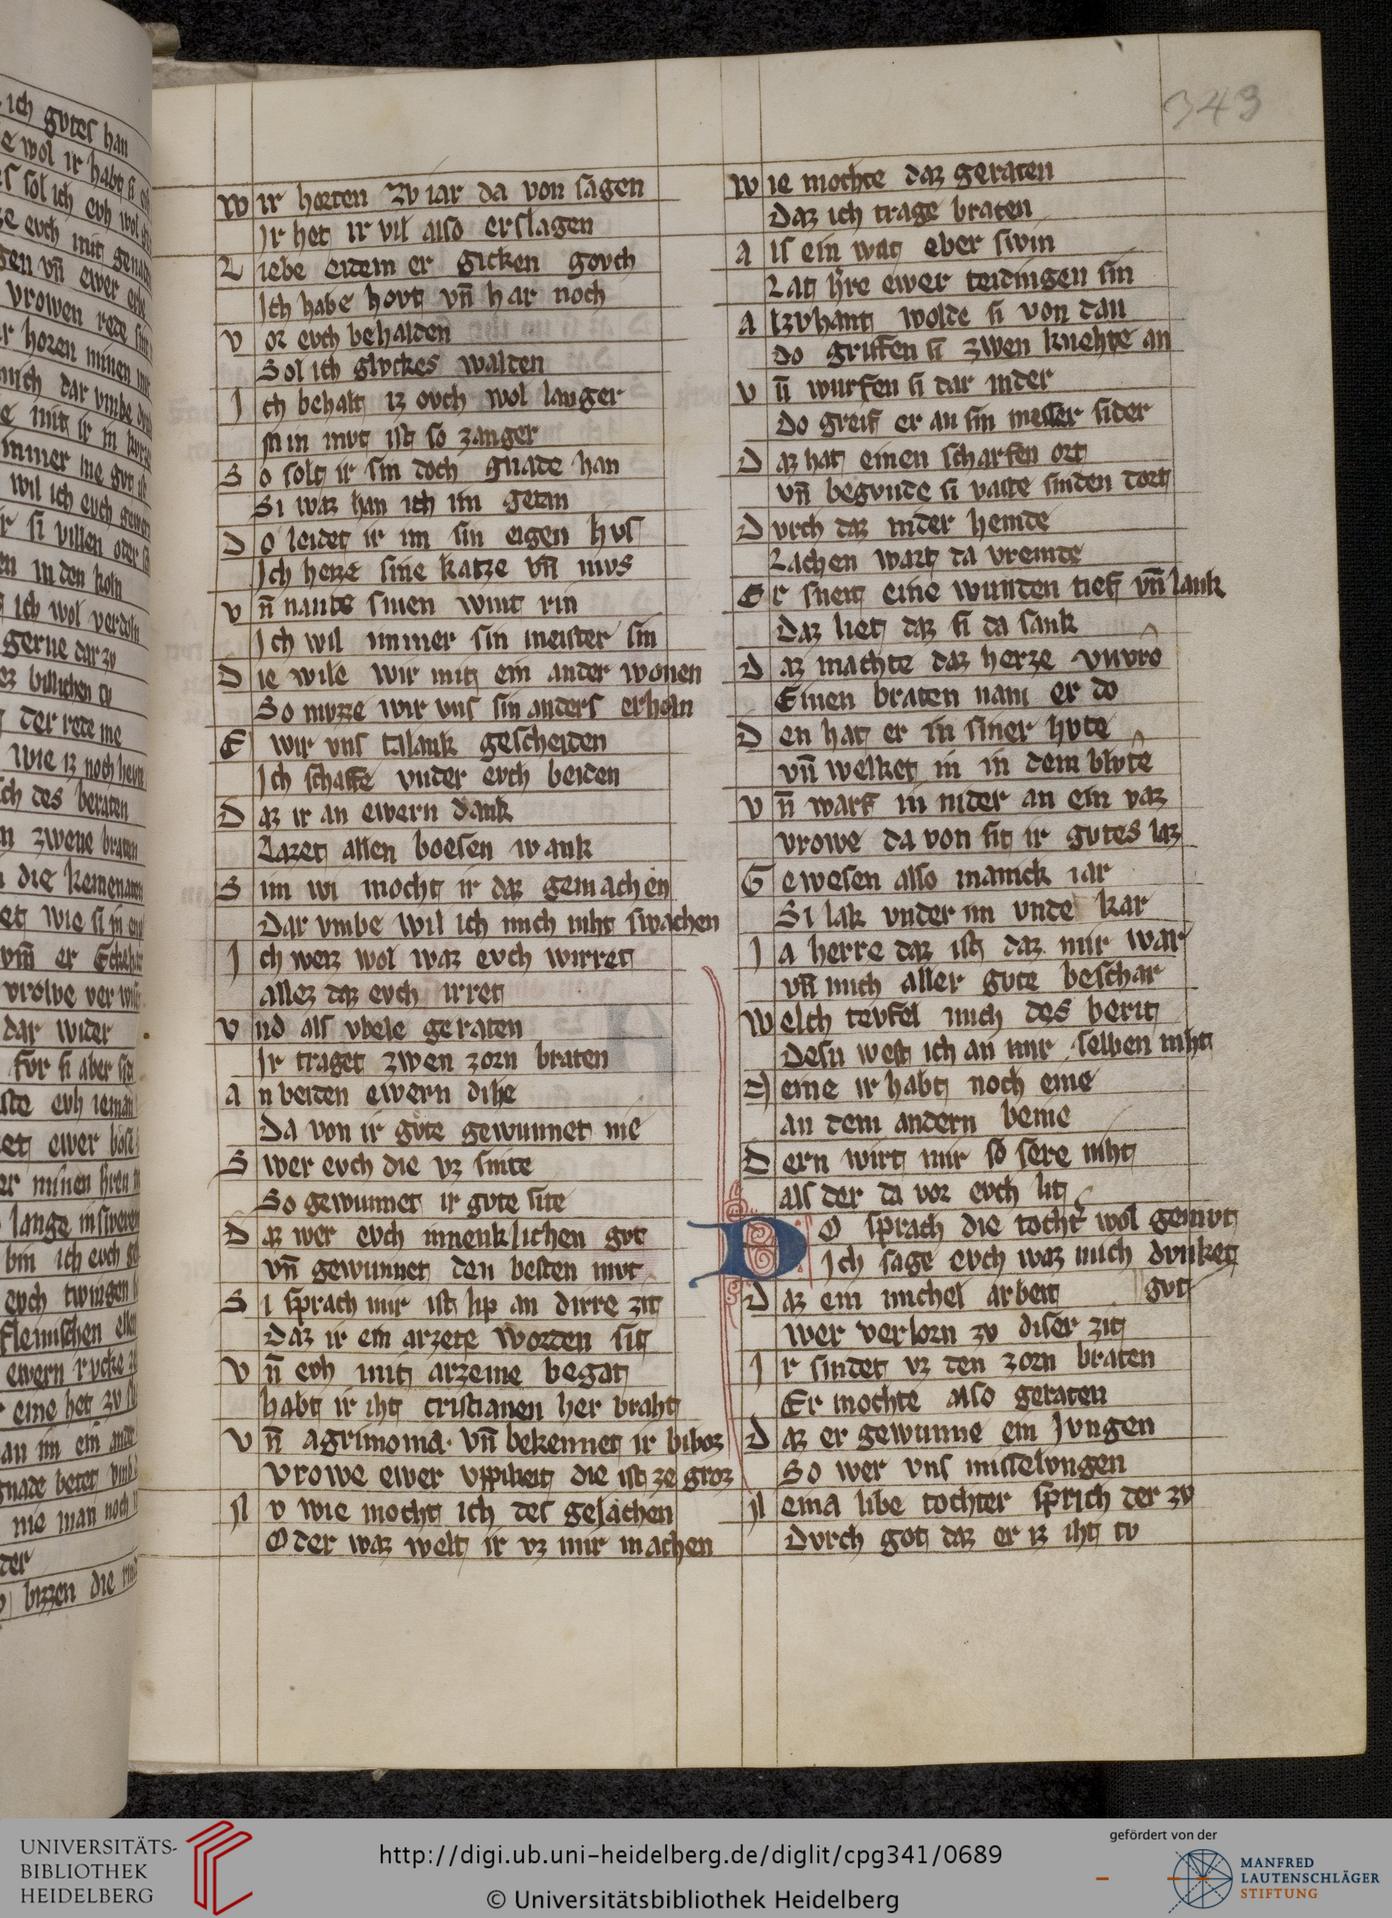 343
Wir horten zv iar da von sagen
Ir het ir vil also erslagen
Liebe eidem er gicken govch
Ich habe hovt vn̄ har noch
Vor evch behalden
Sol ich glvckes walden
Ich behalt iz ovch wol langer
Min mvt ist so zanger
So solt ir sin doch gnade han
Si waz han ich im getan
Do leidet ir im sin eigen hvs
Ich hetze sine katze vn̄ mvs
Vn̄ sinen wint rin
Ich wil immer sin meister sin
Die wile wir mit ein ander wonen
So mvzze wir vns sin anders erholn
E wir vns talank gescheiden
Ich schaffe vnder evch beiden
Daz ir an ewern dank
Lazet allen boesen wank
Sim wi mocht ir daz gemachen
Dar vmbe wil ich mich niht swachen
Ich weiz wol waz evch wirret
allez daz evch irret
Vnd als vbele geraten
Ir traget zwen zorn braten
An beiden ewern dihe
Da von ir gvte gewunnet nie
Swer evch die vz snite
So gewunnet ir gvte site
Daz wer evch inneklichen gvt
vn̄ gewunnet den besten mvt
Si sprach mir ist lip an dirre zit
Daz ir ein arzete worden sit
Vn̄ evh mit arzenie begat
habt ir iht cristianen her braht
Vn̄ agrimonia. vn̄ bekennet ir biboz
Vrowe ewer vppikeit die ist ze groz
Nv wie mocht ich des gelachen
Oder waz welt ir vz mir machen
Wie mochte daz geraten
Daz ich trage braten
Als ein wat eber swin
Lat h̄re ewer teidingen sin
Alzvhant wolde si von dan
do griffen si zwen knehte an
Vn̄ wurfen si dar nider
Do greif er an sin messer sider
Daz hat einen scharfen ort
vn̄ begvnde si vaste sniden dort
Dvrch daz nider hemde
Lachen wart da vremde
Er sneit eine wunden tief vn̄ lank
Daz liet daz si da sank
Daz machte daz herze vnvro
Einen braten nam er do
Den hat er in siner hvte
vn̄ welket in in dem blvte
Vn̄ warf in nider an ein vaz
vrowe da von sit ir gvtes laz
Gewesen also manick iar
Si lak vnder im vnde kar
Ja herre daz ist daz mir war
vn̄ mich aller gvte beschar
Welch tevfel mich des berit
Desn west ich an mir selben niht
Deine ir habt noch eine
an dem andern beine
Dern wirt mir so sere niht
als der da vor evch lit
Do sprach die tocht̄ wol gemvt
Ich sage evch waz mich dvnket
Daz ein michel arbeit gvt
wer verlorn zv diser zit
Ir snidet vz den zorn braten
Er mochte also geraten
Daz er gewunne ein Jvngen
So wer vns misselvngen
Neina libe tochter sprich der zv
Dvrch got daz er iz iht tv
UNIVERSITÄTS-
BIBLIOTHEK
HEIDELBERG
http://digi.ub.uni-heidelberg.de/diglit/cpg341/0689
© Universitätsbibliothek Heidelberg
gefördert von der
MANFRED
LAUTENSCHLÄGER
STIFTUNG